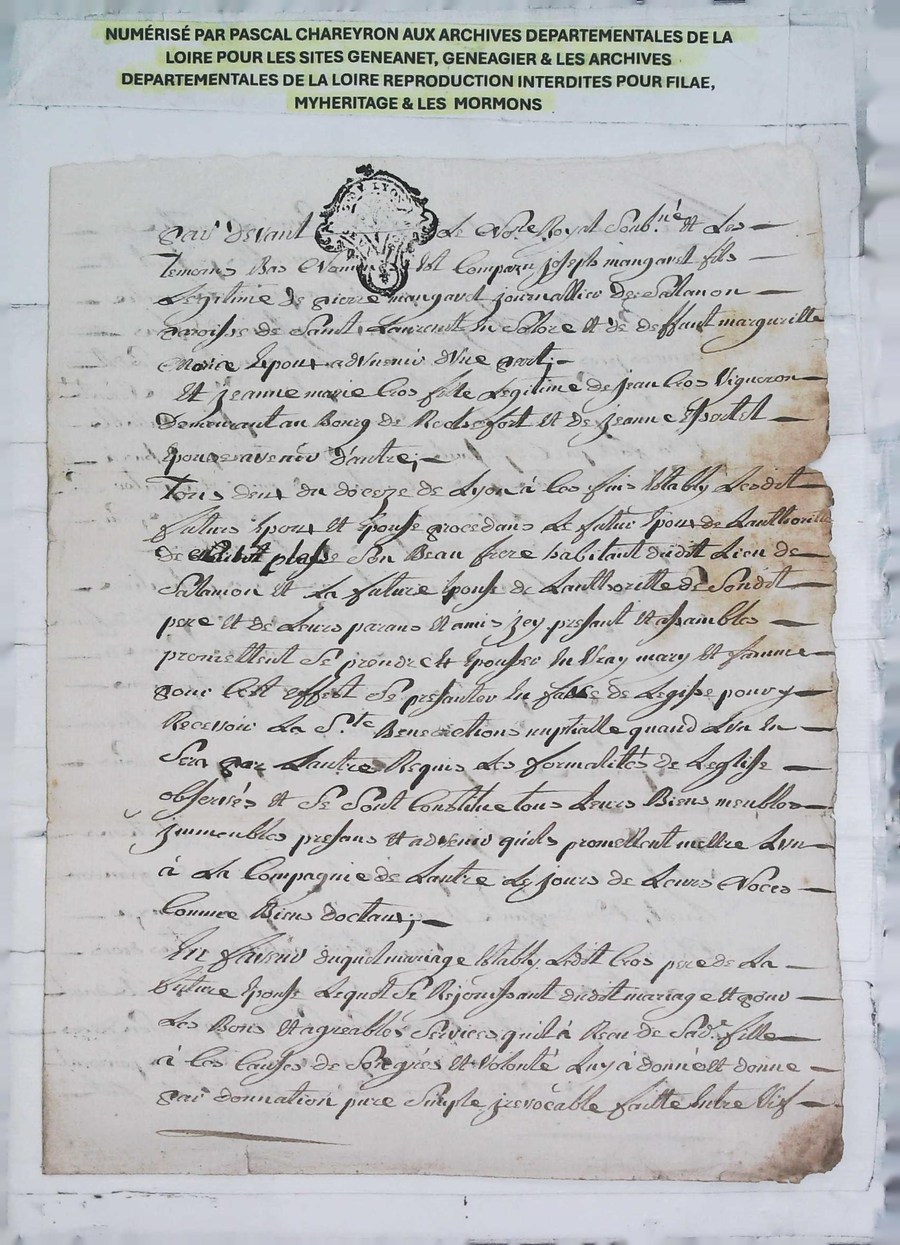 NUMÉRISÉ PAR PASCAL CHAREYRON AUX ARCHIVES DEPARTEMENTALES DE LA
LOIRE POUR LES SITES GENEANET, GENEAGIER & LES ARCHIVES
DEPARTEMENTALES DE LA LOIRE REPRODUCTION INTERDITES POUR FILAE,
MYHERITAGE & LES MORMONS
par devant Le No.re Royal Soub.né et Les
Temoins Bas Nom Est Comparu joseph mangaret fils
Legitime de pierre mangaret journallier de Sallanon
paroisse de Saint Laurent En Solore et de deffant margurille
Epoux advenir d'Une part;
Et jeanne marie Cros fille Legitime de jean Cros Vigneron
Demeurant au Bourg de Rochefort et de jeanne
Epouse avenir d'autre;
Tous deux du dioceze de Lyon à Ces fins Estably Lesdit
futurs Epoux et Epouse procedans Le futur Epoux de Lauthoritté
de Son Beau frere habitant dudit Lieu de
Salanion et La future Epouse de Lauthoritté de Sondit
pere et de Leurs parans et amis jcy presant et assambles
promettent Se prendre et Epouser En Vray mary et famme
pour Cest effest Se presanter En fasse de Legise pour y
Recevoir La S.te Benedictions nuptialle quand Lun En
Sera par Lautre Requis Les formalités de Leglise
observés et Se Sont Constitue tous Leurs Biens meubles
jmmeubles presans et advenir quils promettent mettre Lun
à La Compagnie de Lautre Le jours de Leurs Noces
Comme Biens doctaux;
En faveur duquel mariage Estably Ledit Cros pere de La
future Epouse Lequel Se Rejouissant dudit mariage et pour
Les Bons et agreables Services quil à Receu de Sad. fille
à Ces Causes de Son grés et Volonté Luy à donné et donne
par donnation pure Simple jrevocable faitte Entre Vif